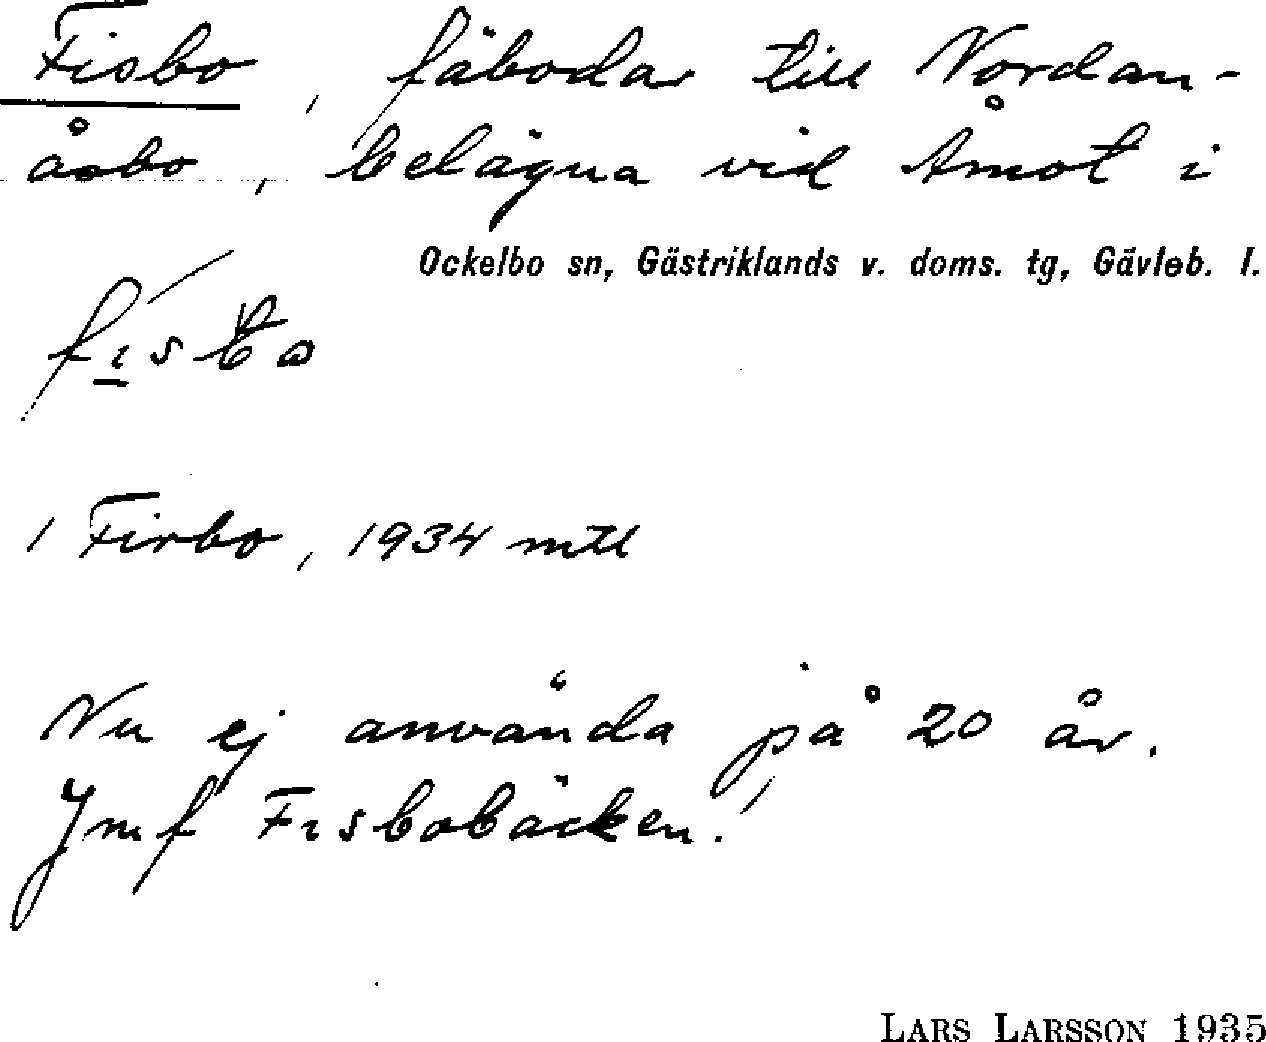 Fisbo, fäbodar till Nordan-
åsbo, belägna vid Åmot i
Ockelbo sn, Gästriklands v. doms. tg, Gävleb. l.
1 Firbo, 1934 mtl
Nu ej använda på 20 år.
Jmf Fisbobäcken!
LARS LARSSON 1935